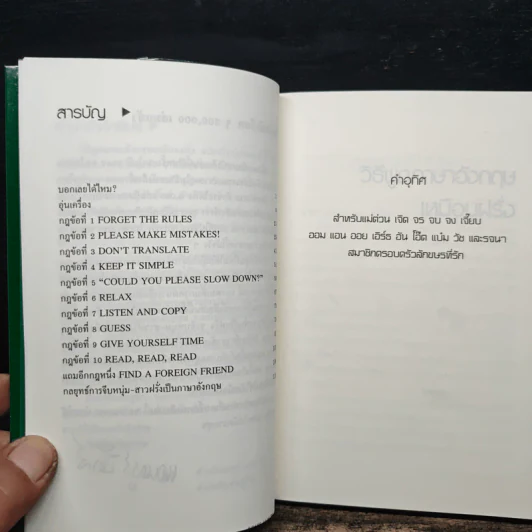 สารบัญ
บอกเลยได้ไหม?
อุ่นเครื่อง
กฎข้อที่ 1 FORGET THE RULES
กฎข้อที่ 2 PLEASE MAKE MISTAKES!
กฎข้อที่ 3 DON'T TRANSLATE
กฎข้อที่ 4 KEEP IT SIMPLE
กฎข้อที่ 5 "COULD YOU PLEASE SLOW DOWN?"
กฎข้อที่ 6 RELAX
กฎข้อที่ 7 LISTEN AND COPY
กฎข้อที่ 8 GUESS
กฎข้อที่ 9 GIVE YOURSELF TIME
กฎข้อที่ 10 READ, READ, READ
แถมอีกกฎหนึ่ง FIND A FOREIGN FRIEND
กลยุทธ์การจีบหนุ่ม-สาวฝรั่งเป็นภาษาอังกฤษ
คำอุทิศ
สำหรับแม่ด่วน เจิด จร จบ จง เจี๊ยบ
ออม แอน ออย เอิร์ธ อัน โอ๊ต แบ๋ม วัช และรจนา
สมาชิกครอบครัวลักขษรที่รัก